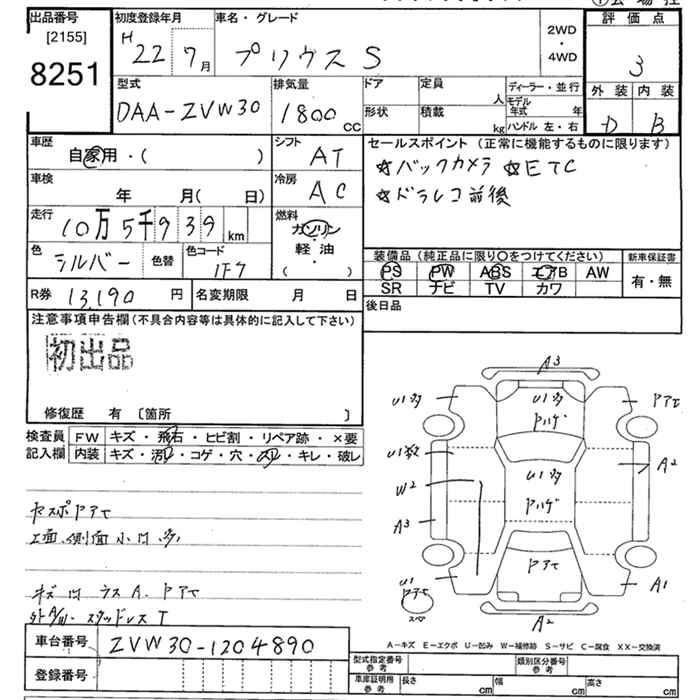 出品番号
[2155]
8251
初度登録年月
H 22年 7月
車名・グレード
プリウス S
2WD
・
4WD
評価点
3
外装 内装
D B
型式
DAA-ZVW30
排気量
1800 CC
ドア
形状
定員 人
積載 kg
ディーラー・並行
モデル年式 年
ハンドル 左・右
車歴
自家用・( )
シフト
AT
セールスポイント (正常に機能するものに限ります)
☆バックカメラ ☆ETC
☆ドラレコ前後
車検
年 月( 日)
冷房
AC
走行
10万5千939km
燃料
ガソリン
軽油
( )
色
シルバー
色替
色コード
1F7
装備品 (純正品に限り○をつけてください)
PS PW ABS エアB AW
SR ナビ TV カワ
新車保証書
有・無
R券 13,190 円
名変期限 月 日
後日品
注意事項申告欄(不具合内容等は具体的に記入して下さい)
初出品
修復歴 有 〔箇所 〕
検査員
記入欄
FW キズ・飛石・ヒビ割・リペア跡・×要
内装 キズ・汚れ・コゲ・穴・スレ・キレ・破レ
A3
U1多
U1多
ハゲ
アセ
U1数
A2
W2
U1多
ハゲ
A3
U1
アセ
アセ
A1
スペア
A2
上面、側面 小凹 多
スタッドレス T
車台番号 ZVW30-1204890
登録番号
A-キズ E-エクボ U-凹み W-補修跡 S-サビ C-腐食 XX-交換済
型式指定番号
参考
類別区分番号
参考
車庫証明用
参考
長さ cm 幅 cm 高さ cm